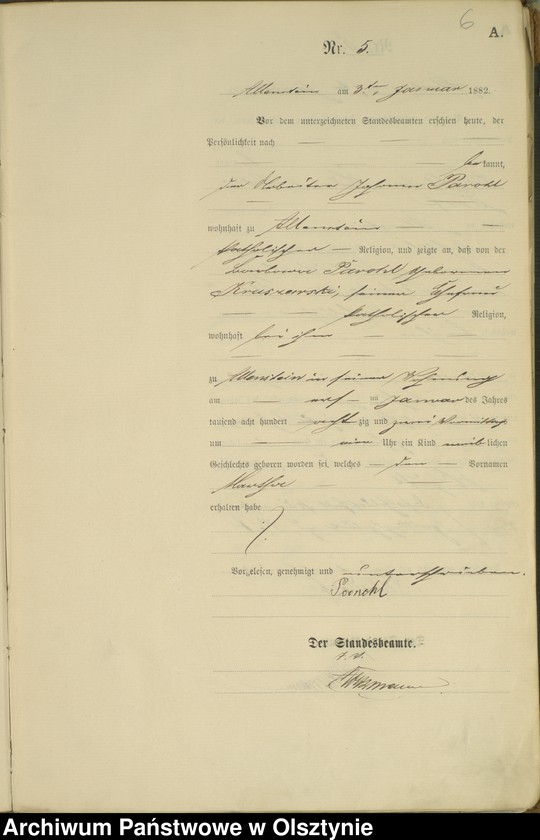 6
A.
Nr. 5.
Allenstein am 3ten Januar 1882
Vor dem unterzeichneten Standesbeamten erschien heute, der
Persönlichkeit nach
be kannt,
der Arbeiter Johann Parohl
wohnhaft zu Allenstein
katholischer Religion, und zeigte an, daß von der
Barbara Parohl geborenen
Kruszewski, seiner Ehefrau
katholischer Religion,
wohnhaft bei ihm
zu Allenstein in seiner Wohnung
am ersten Januar des Jahres
tausend acht hundert acht zig und zwei Vormittags
um ein Uhr ein Kind weib lichen
Geschlechts geboren worden sei, welches den Vornamen
Martha
erhalten habe
Vorgelesen, genehmigt und unterschrieben.
Parohl
Der Standesbeamte.
Archiwum Państwowe w Olsztynie